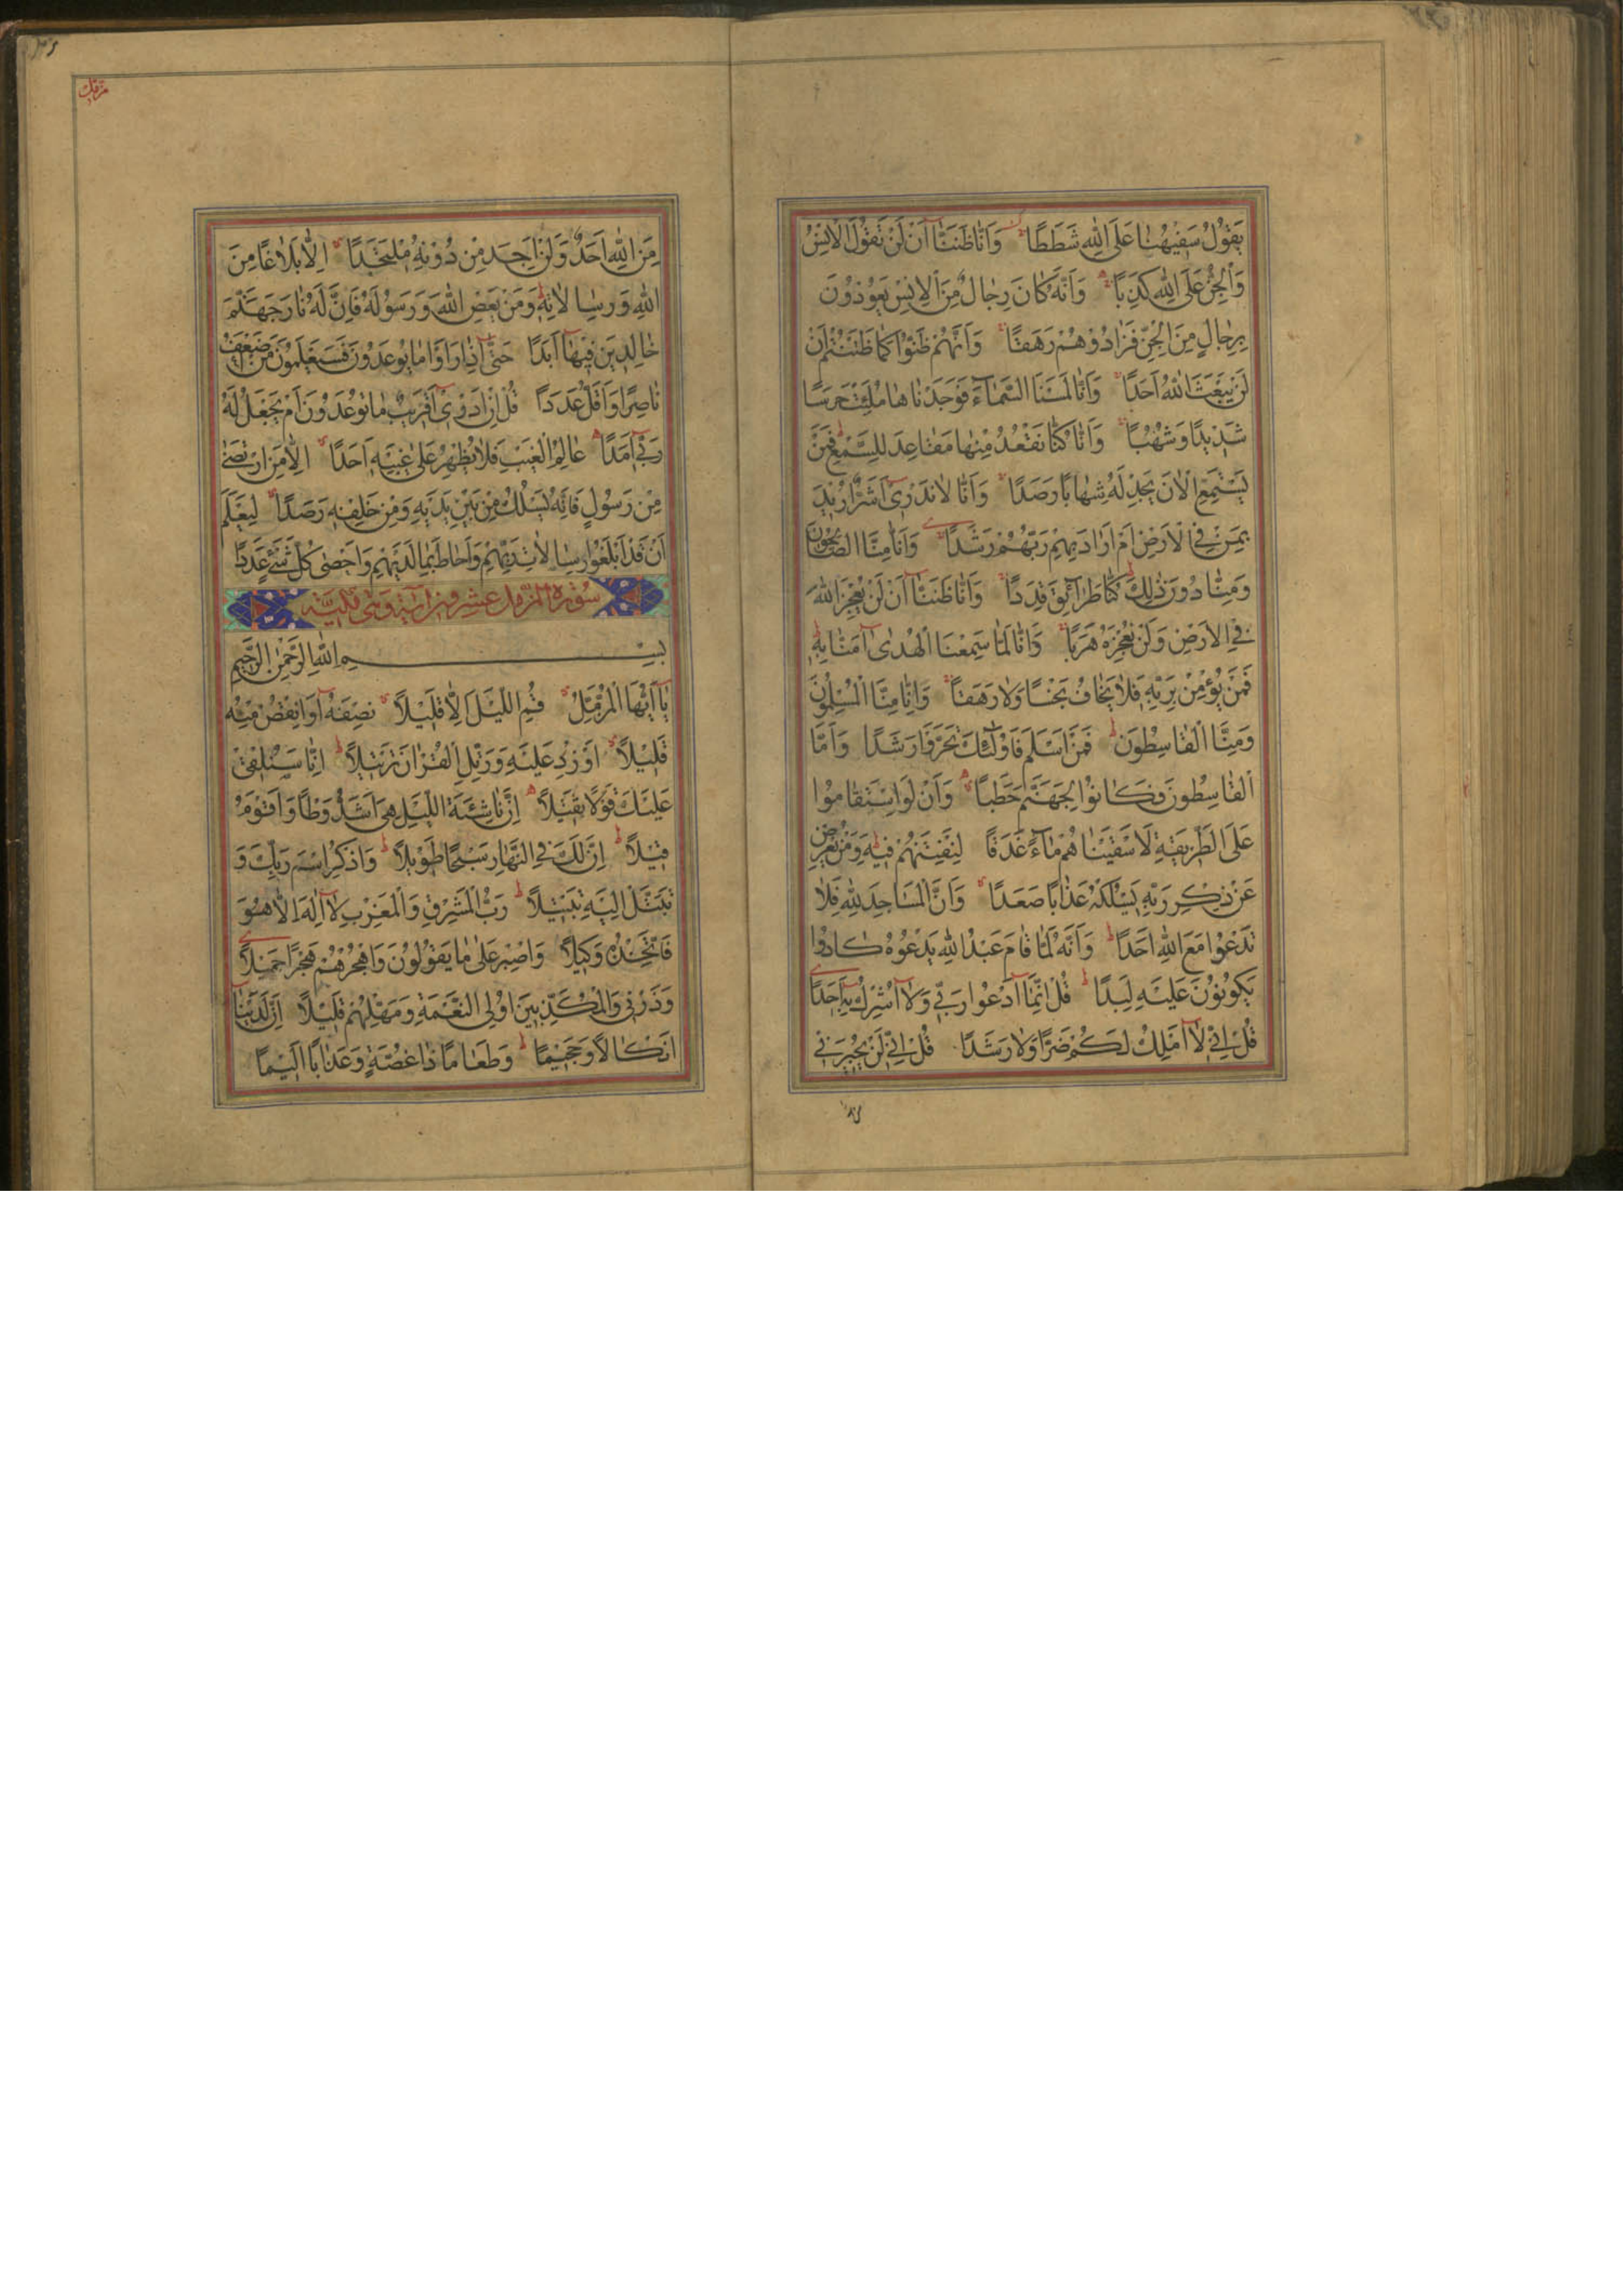 يَقُولُ سَفِيهُنَا عَلَى اللّٰهِ شَطَطًا وَاَنَّا ظَنَنَّا اَنْ لَنْ تَقُولَ الْاِنْسُ
وَالْجِنُّ عَلَى اللّٰهِ كَذِبًا وَاَنَّهُ كَانَ رِجَالٌ مِنَ الْاِنْسِ يَعُوذُونَ
بِرِجَالٍ مِنَ الْجِنِّ فَزَادُوهُمْ رَهَقًا وَاَنَّهُمْ ظَنُّوا كَمَا ظَنَنْتُمْ اَنْ
لَنْ يَبْعَثَ اللّٰهُ اَحَدًا وَاَنَّا لَمَسْنَا السَّمَآءَ فَوَجَدْنَاهَا مُلِئَتْ حَرَسًا
شَدِيدًا وَشُهُبًا وَاَنَّا كُنَّا نَقْعُدُ مِنْهَا مَقَاعِدَ لِلسَّمْعِ فَمَنْ
يَسْتَمِعِ الْاٰنَ يَجِدْ لَهُ شِهَابًا رَصَدًا وَاَنَّا لَا نَدْرِىٓ اَشَرٌّ اُرِيدَ
بِمَنْ فِى الْاَرْضِ اَمْ اَرَادَ بِهِمْ رَبُّهُمْ رَشَدًا وَاَنَّا مِنَّا الصَّالِحُونَ
وَمِنَّا دُونَ ذٰلِكَ كُنَّا طَرَآئِقَ قِدَدًا وَاَنَّا ظَنَنَّآ اَنْ لَنْ نُعْجِزَ اللّٰهَ
فِى الْاَرْضِ وَلَنْ نُعْجِزَهُ هَرَبًا وَاَنَّا لَمَّا سَمِعْنَا الْهُدٰىٓ اٰمَنَّا بِهِ
فَمَنْ يُؤْمِنْ بِرَبِّهِ فَلَا يَخَافُ بَخْسًا وَلَا رَهَقًا وَاَنَّا مِنَّا الْمُسْلِمُونَ
وَمِنَّا الْقَاسِطُونَ فَمَنْ اَسْلَمَ فَاُولٰٓئِكَ تَحَرَّوْا رَشَدًا وَاَمَّا
الْقَاسِطُونَ فَكَانُوا لِجَهَنَّمَ حَطَبًا وَاَنْ لَوِ اسْتَقَامُوا
عَلَى الطَّرِيقَةِ لَاَسْقَيْنَاهُمْ مَآءً غَدَقًا لِنَفْتِنَهُمْ فِيهِ وَمَنْ يُعْرِضْ
عَنْ ذِكْرِ رَبِّهِ يَسْلُكْهُ عَذَابًا صَعَدًا وَاَنَّ الْمَسَاجِدَ لِلّٰهِ فَلَا
تَدْعُوا مَعَ اللّٰهِ اَحَدًا وَاَنَّهُ لَمَّا قَامَ عَبْدُ اللّٰهِ يَدْعُوهُ كَادُوا
يَكُونُونَ عَلَيْهِ لِبَدًا قُلْ اِنَّمَآ اَدْعُوا رَبِّى وَلَآ اُشْرِكُ بِهِٓ اَحَدًا
قُلْ اِنِّى لَآ اَمْلِكُ لَكُمْ ضَرًّا وَلَا رَشَدًا قُلْ اِنِّى لَنْ يُجِيرَنِى
مزمل
مِنَ اللّٰهِ اَحَدٌ وَلَنْ اَجِدَ مِنْ دُونِهِ مُلْتَحَدًا اِلَّا بَلَاغًا مِنَ
اللّٰهِ وَرِسَالَاتِهِ وَمَنْ يَعْصِ اللّٰهَ وَرَسُولَهُ فَاِنَّ لَهُ نَارَ جَهَنَّمَ
خَالِدِينَ فِيهَآ اَبَدًا حَتّٰىٓ اِذَا رَاَوْا مَا يُوعَدُونَ فَسَيَعْلَمُونَ مَنْ اَضْعَفُ
نَاصِرًا وَاَقَلُّ عَدَدًا قُلْ اِنْ اَدْرِىٓ اَقَرِيبٌ مَا تُوعَدُونَ اَمْ يَجْعَلُ لَهُ
رَبِّىٓ اَمَدًا عَالِمُ الْغَيْبِ فَلَا يُظْهِرُ عَلٰى غَيْبِهِ اَحَدًا اِلَّا مَنِ ارْتَضٰى
مِنْ رَسُولٍ فَاِنَّهُ يَسْلُكُ مِنْ بَيْنِ يَدَيْهِ وَمِنْ خَلْفِهِ رَصَدًا لِيَعْلَمَ
اَنْ قَدْ اَبْلَغُوا رِسَالَاتِ رَبِّهِمْ وَاَحَاطَ بِمَا لَدَيْهِمْ وَاَحْصٰى كُلَّ شَىْءٍ عَدَدًا
سُورة المزمل عشرون اية وهى مكية
بِسْمِ اللّٰهِ الرَّحْمٰنِ الرَّحِيمِ
يَآ اَيُّهَا الْمُزَّمِّلُ قُمِ اللَّيْلَ اِلَّا قَلِيلًا نِصْفَهُٓ اَوِ انْقُصْ مِنْهُ
قَلِيلًا اَوْ زِدْ عَلَيْهِ وَرَتِّلِ الْقُرْاٰنَ تَرْتِيلًا اِنَّا سَنُلْقِى
عَلَيْكَ قَوْلًا ثَقِيلًا اِنَّ نَاشِئَةَ اللَّيْلِ هِىَ اَشَدُّ وَطْأً وَاَقْوَمُ
قِيلًا اِنَّ لَكَ فِى النَّهَارِ سَبْحًا طَوِيلًا وَاذْكُرِ اسْمَ رَبِّكَ وَ
تَبَتَّلْ اِلَيْهِ تَبْتِيلًا رَبُّ الْمَشْرِقِ وَالْمَغْرِبِ لَآ اِلٰهَ اِلَّا هُوَ
فَاتَّخِذْهُ وَكِيلًا وَاصْبِرْ عَلٰى مَا يَقُولُونَ وَاهْجُرْهُمْ هَجْرًا جَمِيلًا
وَذَرْنِى وَالْمُكَذِّبِينَ اُولِى النَّعْمَةِ وَمَهِّلْهُمْ قَلِيلًا اِنَّ لَدَيْنَآ
اَنْكَالًا وَجَحِيمًا وَطَعَامًا ذَا غُصَّةٍ وَعَذَابًا اَلِيمًا